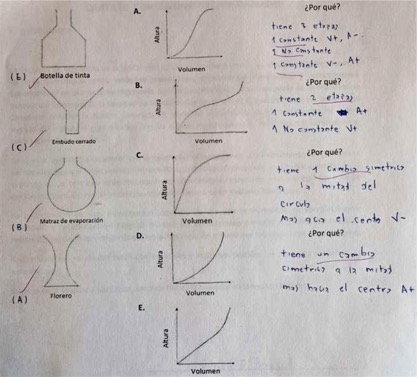 A.
¿Por qué?
Altura
Volumen
tiene 3 etapas
1 constante V+, A-
1 No constante
1 constante V-, A+
(E) Botella de tinta
B.
¿Por qué?
Altura
Volumen
tiene 2 etapas
1 constante A+
1 No constante V+
(C) Embudo cerrado
C.
¿Por qué?
Altura
Volumen
tiene 1 cambio simetrico
a la mitad del
circulo
mas acia el cento V-
(B) Matraz de evaporación
D.
¿Por qué?
Altura
Volumen
tiene un cambio
cimetrico a la mitad
mas hacia el centro A+
(A) Florero
E.
Altura
Volumen